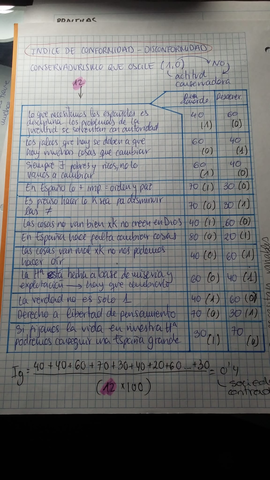 (INDICE DE CONFORMIDAD - DISCONFORMIDAD
CONSERVADURISMO QUE OSCILE (1,0) NO
actitud
conservadora
12
De acuerdo Desacuerdo
Lo que necesitamos los españoles es 40 60
disciplina los problemas de la
se solventan con autoridad (1) (0)
Los males que hay se deben a que 60 40
hay muchas cosas que cambiar (0) (1)
Siempre ∃ pobres y ricos, no lo 60 40
vamos a cambiar (1) (0)
En España lo + imp - orden y paz 70 (1) 30 (0)
Es preciso 70 (0) 30 (1)
las ≠
Las cosas no van bien xk no creen en Dios 40 (1) 60 (0)
En España hace falta cambiar cosas 80 (0) 20 (1)
Las cosas van mal xk no nos podemos 40 (0) 60 (1)
hacer oír
La Hª está hecha a base de miseria y 60 (0) 40 (1)
explotación → hay que cambiarlo
La verdad no es solo 1 40 (1) 60 (0)
Derecho a libertad de pensamiento 70 (0) 30 (1)
Si fijamos la vida en nuestra Hª 30 (1) 70 (0)
podremos conseguir una España grande
Ig = 40 + 40 + 60 + 70 + 30 + 40 + 20 + 60 ... + 30 = 0'4
(12 × 100)